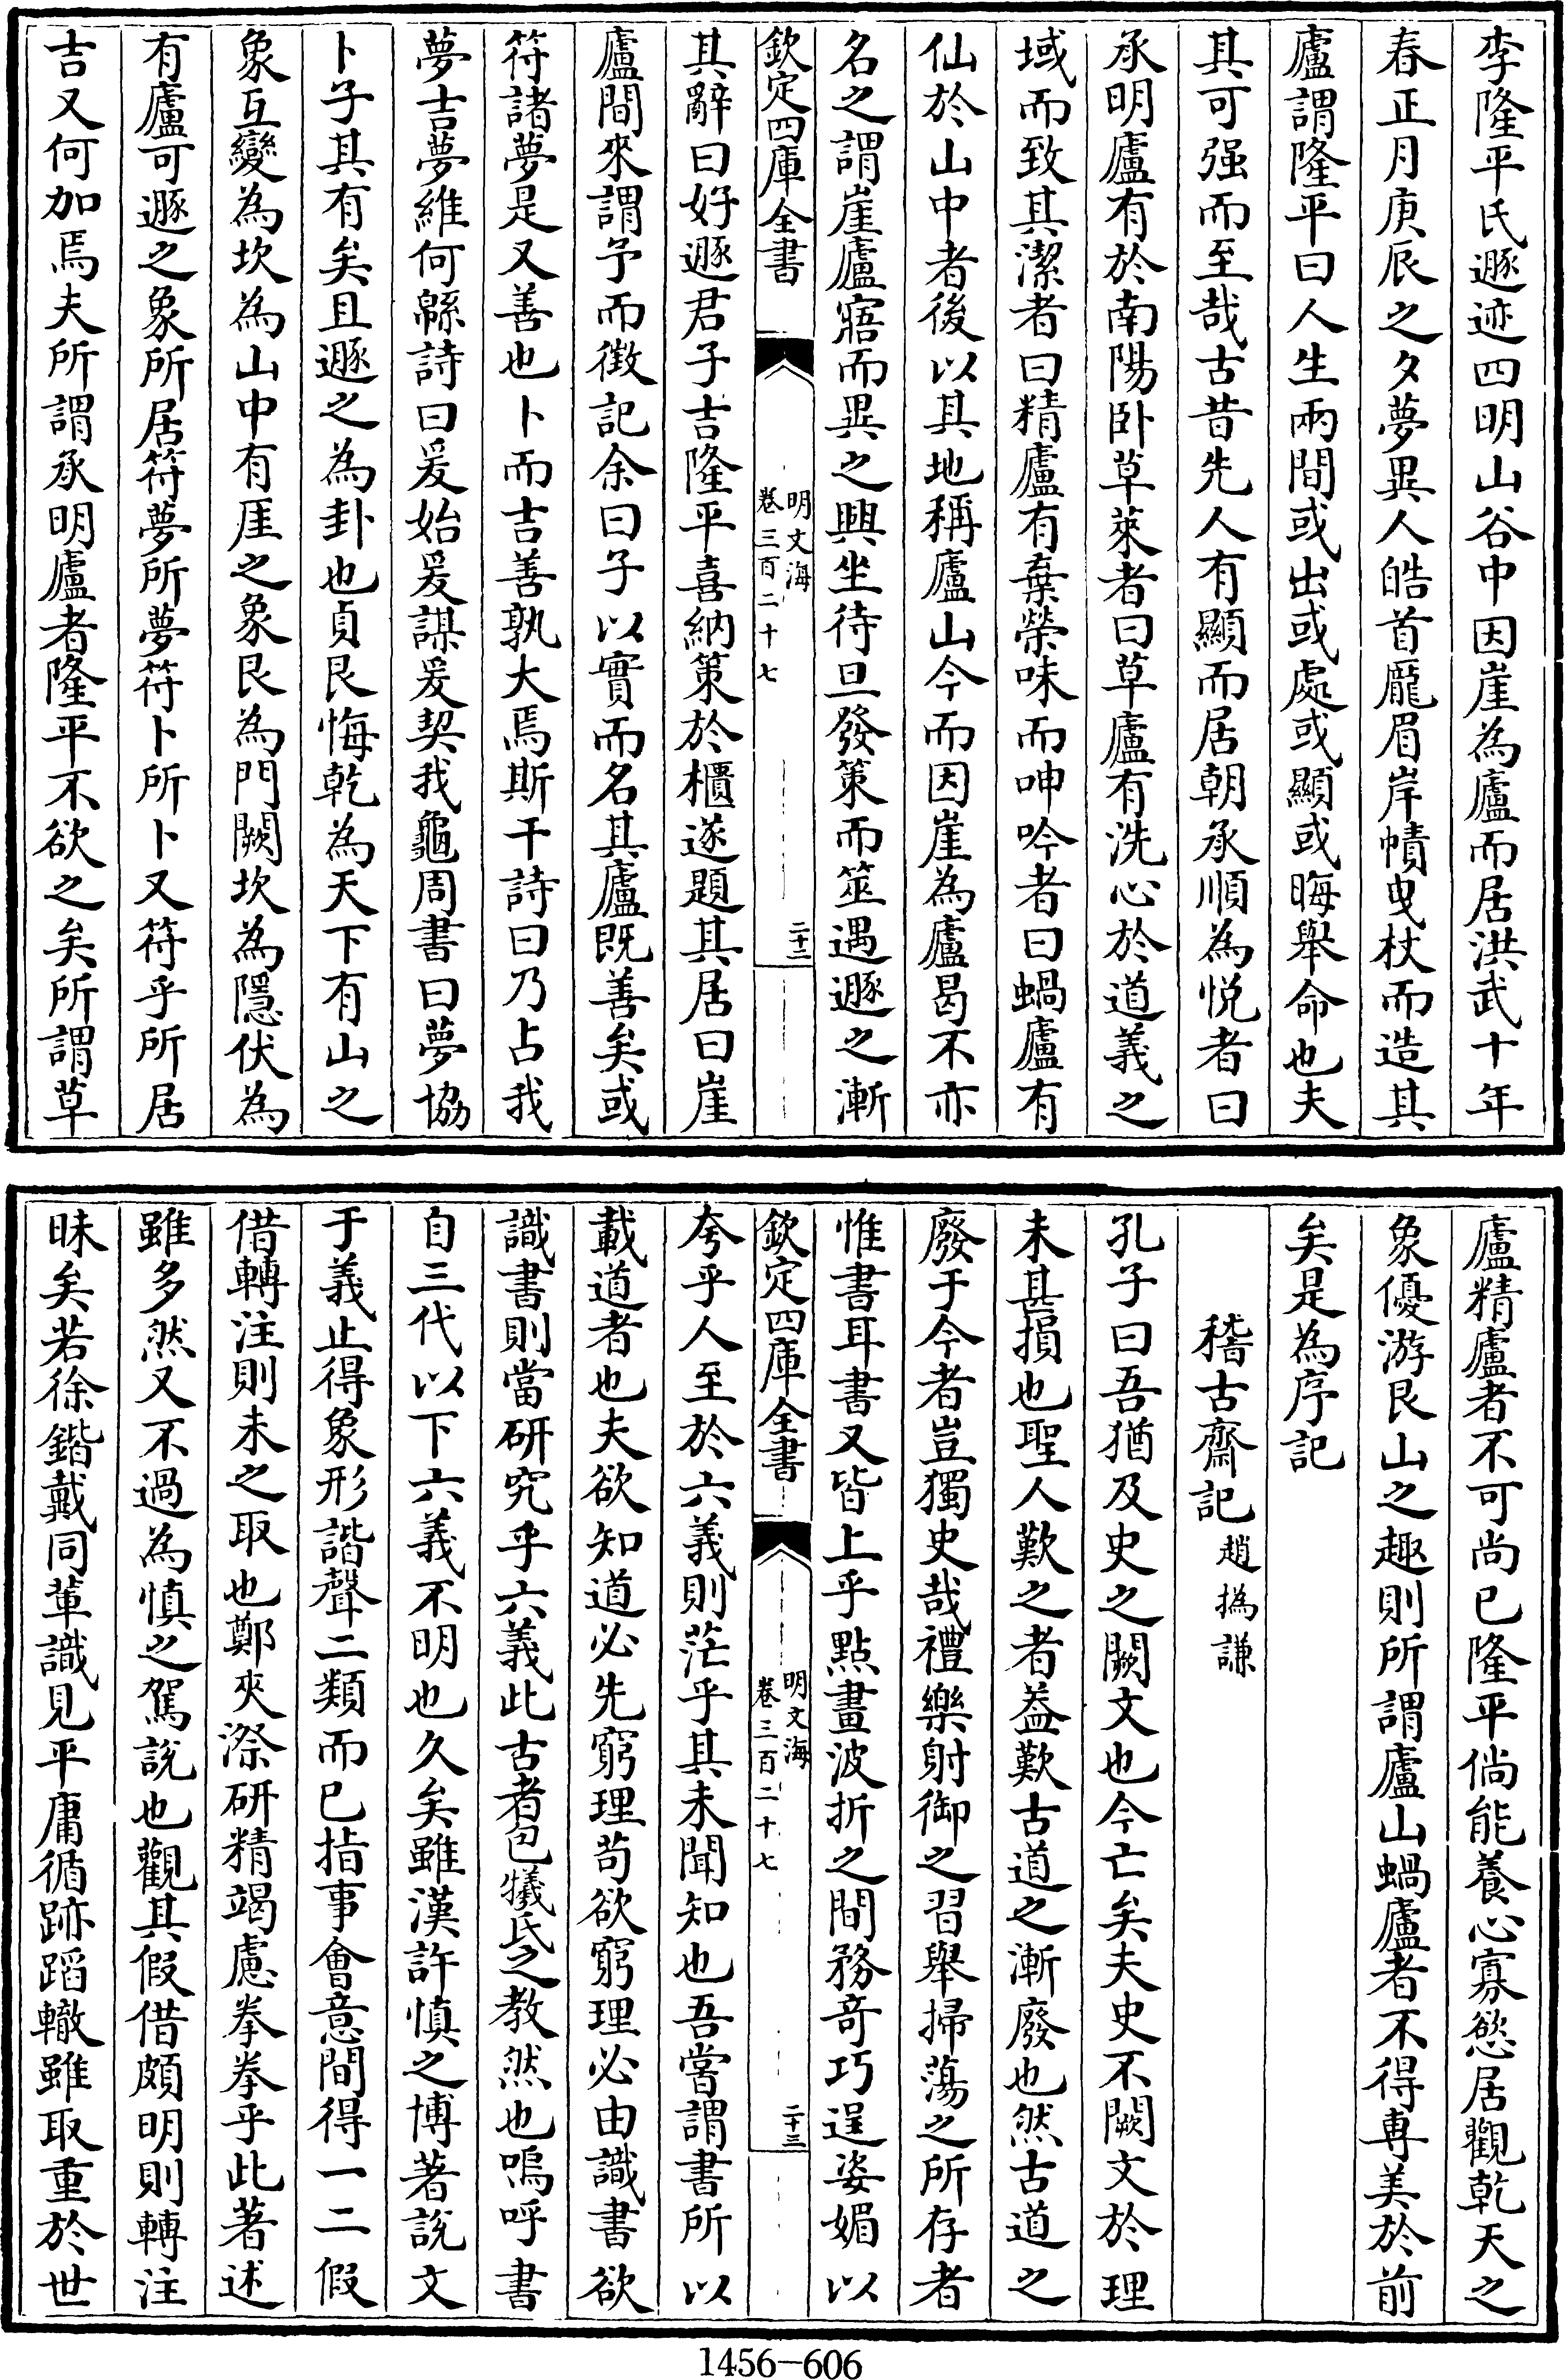 李隆平氏遯迹四明山谷中因崖為廬而居洪武十年
春正月庚辰之夕夢異人皓首厖眉岸幘曳杖而造其
廬謂隆平曰人生兩間或出或處或顯或晦舉命也夫
其可强而至哉古昔先人有顯而居朝承順為悦者曰
承明廬有於南陽卧草萊者曰草廬有洗心於道義之
域而致其潔者曰精廬有棄榮味而呻吟者曰蝸廬有
仙於山中者後以其地稱廬山今而因崖為廬曷不亦
名之謂崖廬寤而異之興坐待旦發策而筮遇遯之漸
欽定四庫全書
明文海
卷三百二十七
二十二
其辭曰好遯君子吉隆平喜納策於櫃遂題其居曰崖
廬間來謂予而徵記余曰子以實而名其廬既善矣或
符諸夢是又善也卜而吉善孰大焉斯干詩曰乃占我
夢吉夢維何緜詩曰爰始爰謀爰契我龜周書曰夢協
卜子其有矣且遯之為卦也貞艮悔乾為天下有山之
象互變為坎為山中有厓之象艮為門闕坎為隱伏為
有廬可遯之象所居符夢所夢符卜所卜又符乎所居
吉又何加焉夫所謂承明廬者隆平不欲之矣所謂草
廬精廬者不可尚已隆平倘能養心寡慾居觀乾天之
象優游艮山之趣則所謂廬山蝸廬者不得專美於前
矣是為序記
稽古齋記 趙撝謙
孔子曰吾猶及史之闕文也今亡矣夫史不闕文於理
未甚損也聖人歎之者益歎古道之漸廢也然古道之
廢于今者豈獨史哉禮樂射御之習舉掃蕩之所存者
惟書耳書又皆上乎點畫波折之間務奇巧逞姿媚以
欽定四庫全書
明文海
卷三百二十七
二十三
夸乎人至於六義則茫乎其未聞知也吾嘗謂書所以
載道者也夫欲知道必先窮理苟欲窮理必由識書欲
識書則當研究乎六義此古者包犧氏之教然也嗚呼書
自三代以下六義不明也久矣雖漢許慎之博著説文
于義止得象形諧聲二類而已指事會意間得一二假
借轉注則未之取也鄭夾漈研精竭慮拳拳乎此著述
雖多然又不過為慎之駕說也觀其假借頗明則轉注
昧矣若徐鍇戴同軰識見平庸循跡蹈轍雖取重於世
1456-606